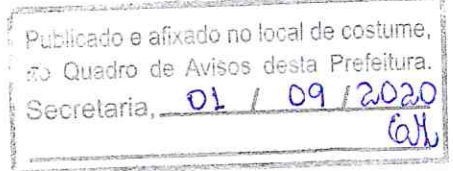 Publicado e afixado no local de costume,
no Quadro de Avisos desta Prefeitura.
Secretaria, 01 / 09 / 2020